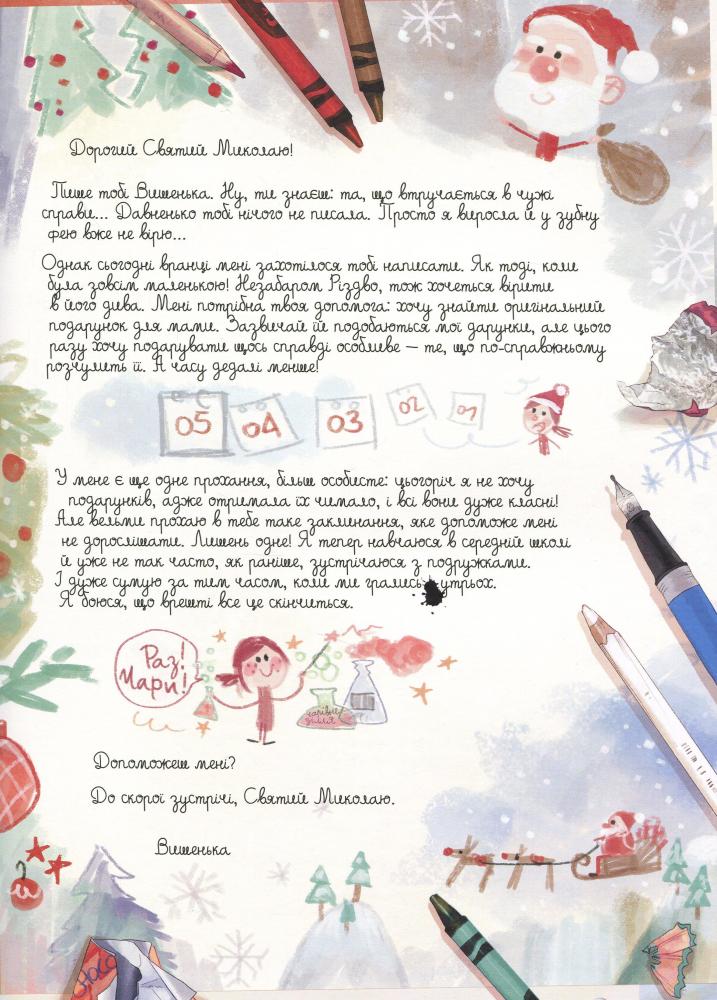 Дорогий Святий Миколаю!
Пише тобі Вишенька. Ну, ти знаєш: та, що втручається в чужі
справи... Давненько тобі нічого не писала. Просто я виросла й у зубну
фею вже не вірю...
Однак сьогодні вранці мені захотілося тобі написати. Як тоді, коли
була зовсім маленькою! Незабаром Різдво, тож хочеться вірити
в його дива. Мені потрібна твоя допомога: хочу знайти оригінальний
подарунок для мами. Зазвичай їй подобаються мої дарунки, але цього
разу хочу подарувати щось справді особливе — те, що по-справжньому
розчулить її. А часу дедалі менше!
05 04 03 02 01
У мене є ще одне прохання, більш особисте: цьогоріч я не хочу
подарунків, адже отримала їх чимало, і всі вони дуже класні!
Але вельми прохаю в тебе таке заклинання, яке допоможе мені
не дорослішати. Лишень одне! Я тепер навчаюся в середній школі
й уже не так часто, як раніше, зустрічаюся з подружками.
І дуже сумую за тим часом, коли ми грались утрьох.
Я боюся, що врешті все це скінчиться.
Раз!
Чари!
чарівне
зілля
Допоможеш мені?
До скорої зустрічі, Святий Миколаю.
Вишенька